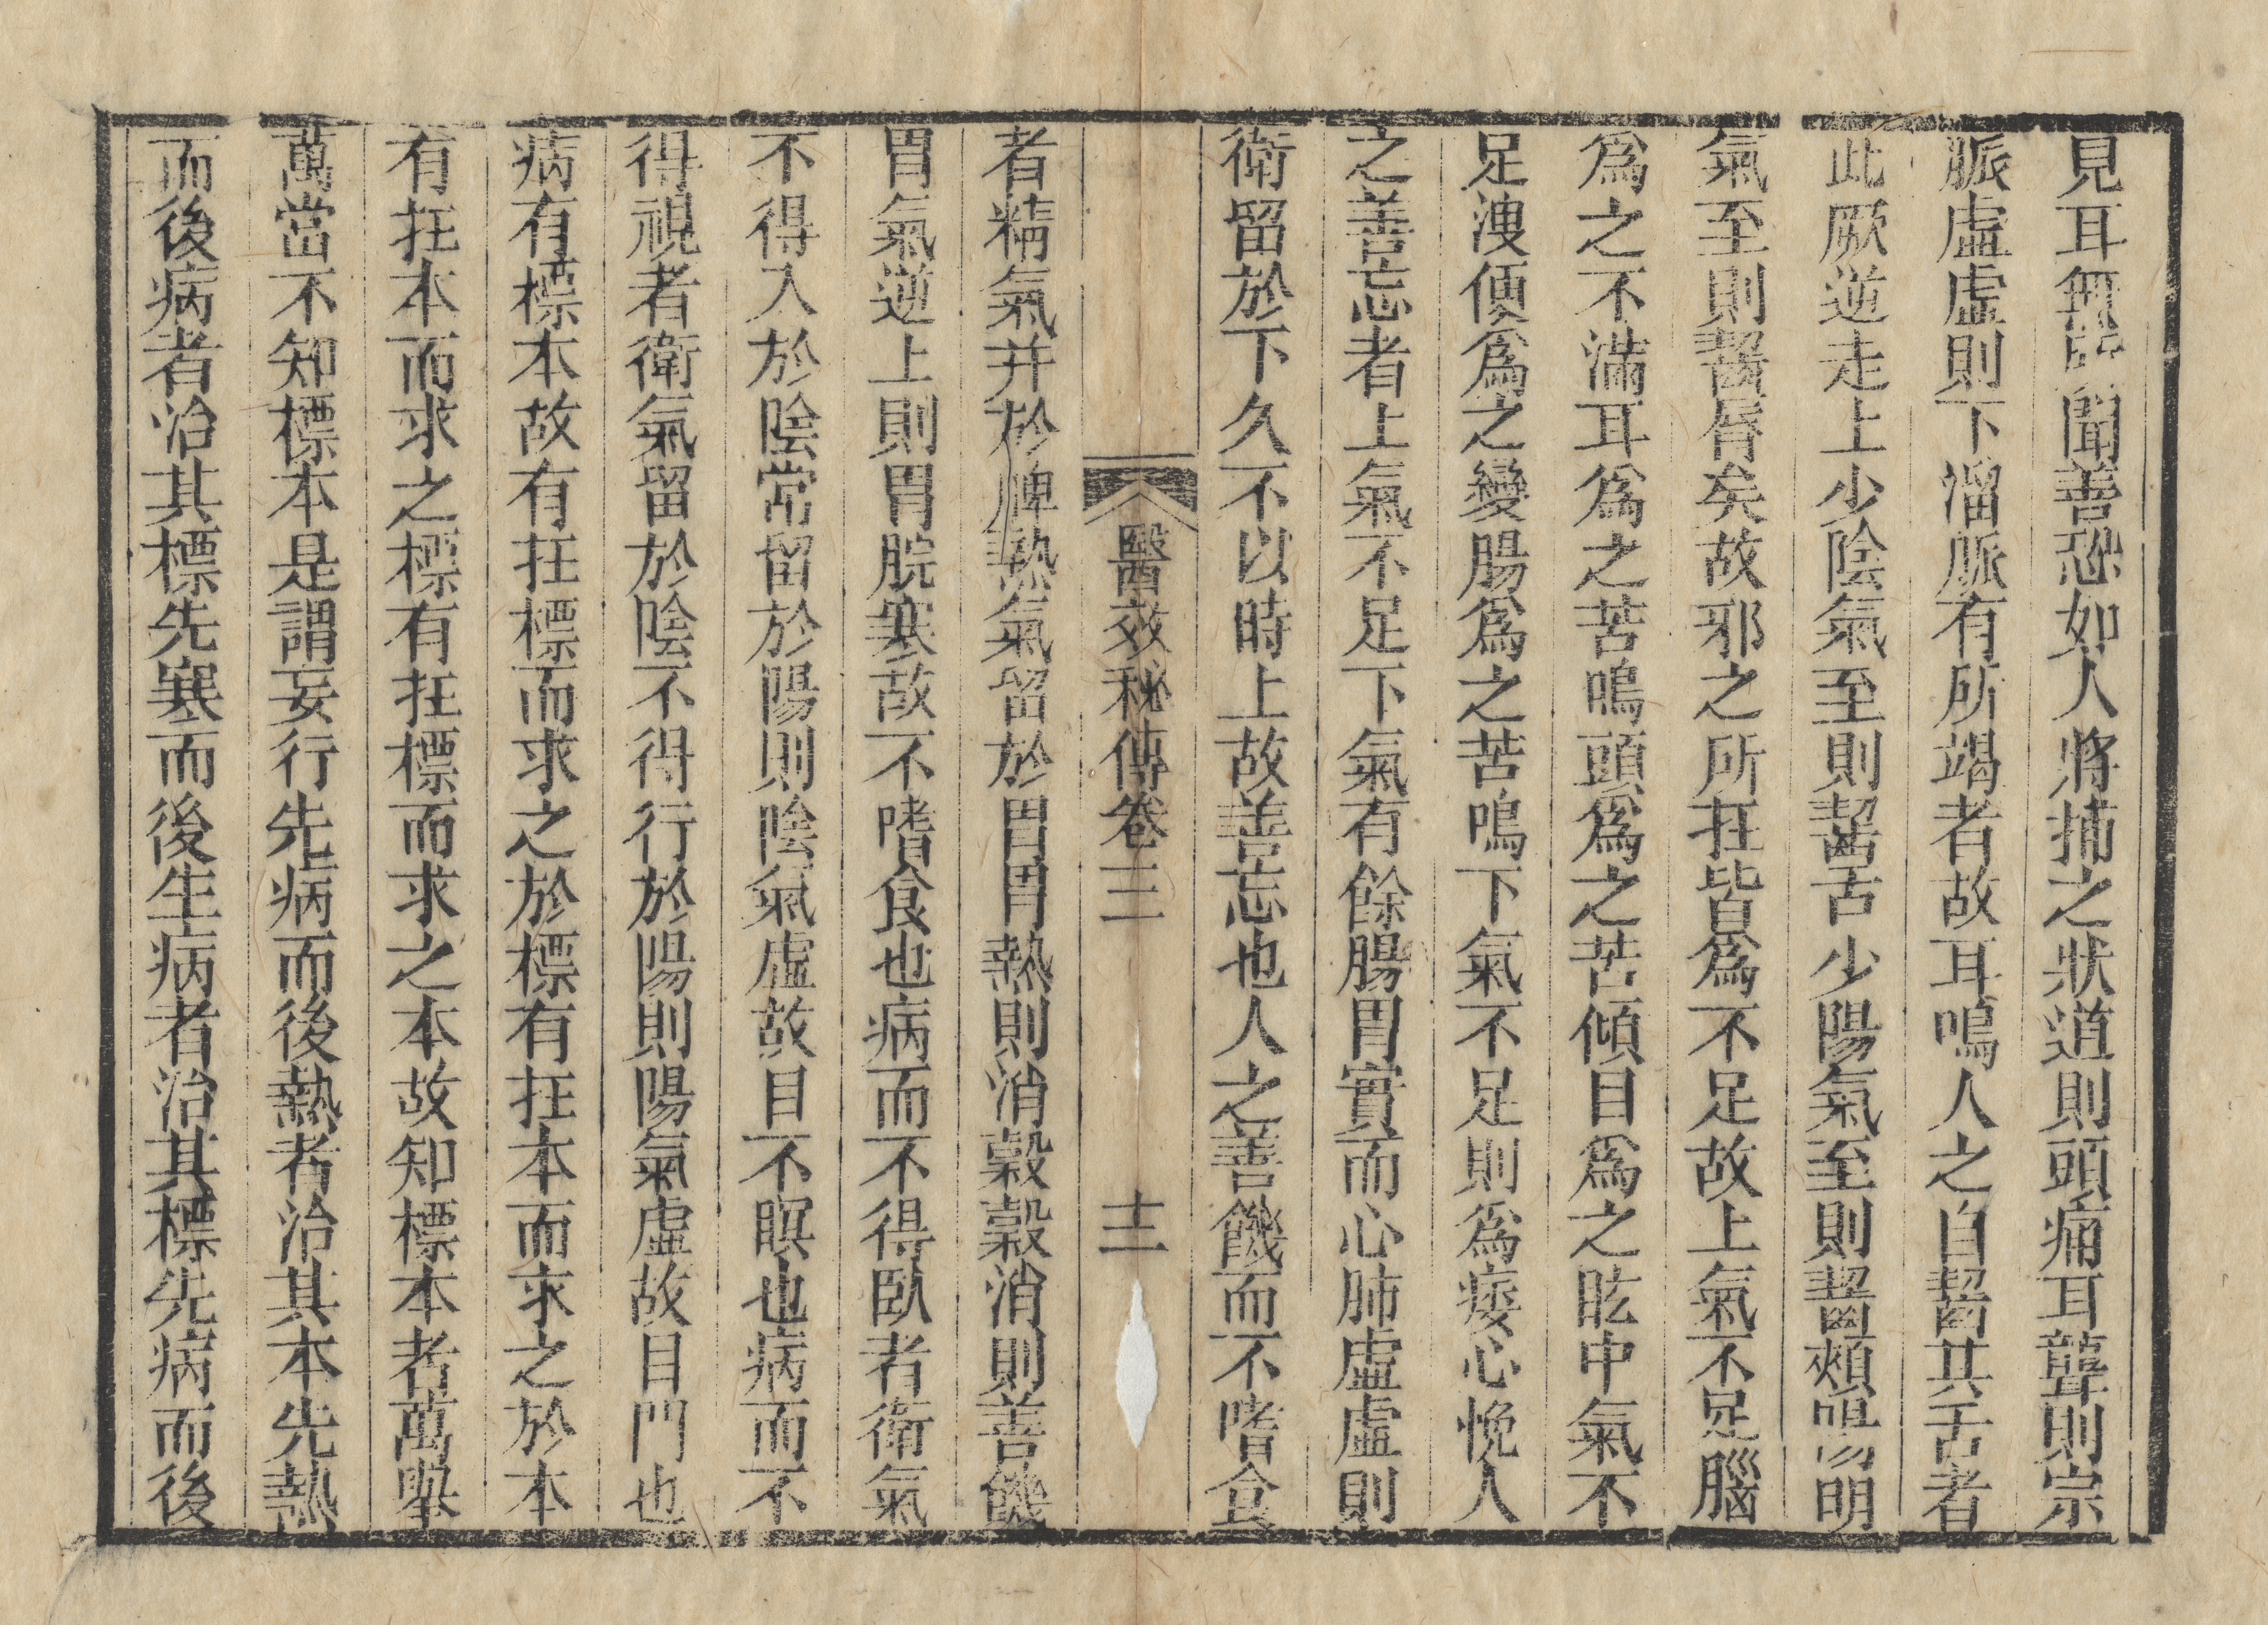 見耳無所聞善恐如人將捕之狀道則頭痛耳聾則宗
脈虛虛則下溜脈有所竭者故耳鳴人之自齧其舌者
此厥逆走上少陰氣至則齧舌少陽氣至則齧頰陽明
氣至則齧脣矣故邪之所在皆爲不足故上氣不足腦
爲之不滿耳爲之苦鳴頭爲之苦傾目爲之眩中氣不
足溲便爲之變腸爲之苦鳴下氣不足則爲痿心悗人
之善忘者上氣不足下氣有餘腸胃實而心肺虛虛則
衛留於下久不以時上故善忘也人之善饑而不嗜食
醫效秘傳卷三 十二
者精氣并於脾熱氣留於胃胃熱則消穀穀消則善饑
胃氣逆上則胃脘寒故不嗜食也病而不得臥者衛氣
不得入於陰常留於陽則陰氣虛故目不瞑也病而不
得視者衛氣留於陰不得行於陽則陽氣虛故目門也
病有標本故有在標而求之於標有在本而求之於本
有在本而求之標有在標而求之本故知標本者萬舉
萬當不知標本是謂妄行先病而後熱者治其本先熱
而後病者治其標先寒而後生病者治其標先病而後